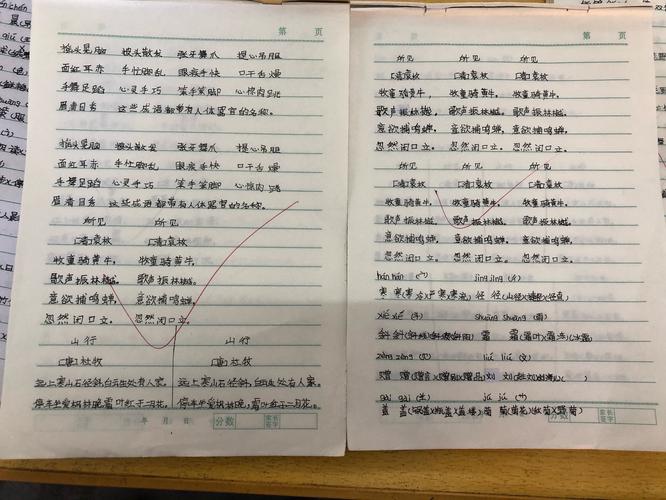 第 页
摇头晃脑 披头散发 张牙舞爪 提心吊胆
面红耳赤 手忙脚乱 眼疾手快 口干舌燥
手舞足蹈 心灵手巧 笨手笨脚 心惊肉跳
眉清目秀 这些成语都带有人体器官的名称。
摇头晃脑 披头散发 张牙舞爪 提心吊胆
面红耳赤 手忙脚乱 眼疾手快 口干舌燥
手舞足蹈 心灵手巧 笨手笨脚 心惊肉跳
眉清目秀 这些成语都带有人体器官的名称。
所见 所见
[清]袁枚 [清]袁枚
牧童骑黄牛, 牧童骑黄牛,
歌声振林樾。 歌声振林樾。
意欲捕鸣蝉, 意欲捕鸣蝉,
忽然闭口立。 忽然闭口立。
山行 山行
[唐]杜牧 [唐]杜牧
远上寒山石径斜,白云生处有人家。 远上寒山石径斜,白云生处有人家。
停车坐爱枫林晚,霜叶红于二月花。 停车坐爱枫林晚,霜叶红于二月花。
年 月 日 分数 家长签字
第 页
所见 所见 所见
[清]袁枚 [清]袁枚 [清]袁枚
牧童骑黄牛, 牧童骑黄牛, 牧童骑黄牛,
歌声振林樾。 歌声振林樾。 歌声振林樾。
意欲捕鸣蝉, 意欲捕鸣蝉, 意欲捕鸣蝉,
忽然闭口立。 忽然闭口立。 忽然闭口立。
所见 所见 所见
[清]袁枚 [清]袁枚 [清]袁枚
牧童骑黄牛, 牧童骑黄牛, 牧童骑黄牛,
歌声振林樾。 歌声振林樾。 歌声振林樾。
意欲捕鸣蝉, 意欲捕鸣蝉, 意欲捕鸣蝉,
忽然闭口立。 忽然闭口立。 忽然闭口立。
hán hán (宀) jìng jìng (彳)
寒 寒(寒冷)(严寒)(寒流) 径 径(山径)(路径)(径直)
xié xié (斗) shuāng shuāng (雨)
斜 斜(斜线)(斜坡)(斜阳) 霜 霜(霜叶)(霜冻)(冰霜)
zèng zèng liú liú (文)
赠 赠(赠言)(赠别)(赠品) 刘 刘
gài gài jú jú (艹)
盖 盖(锅盖)(瓶盖)(盖楼) 菊 菊(菊花)(秋菊)(野菊)
分数 家长签字